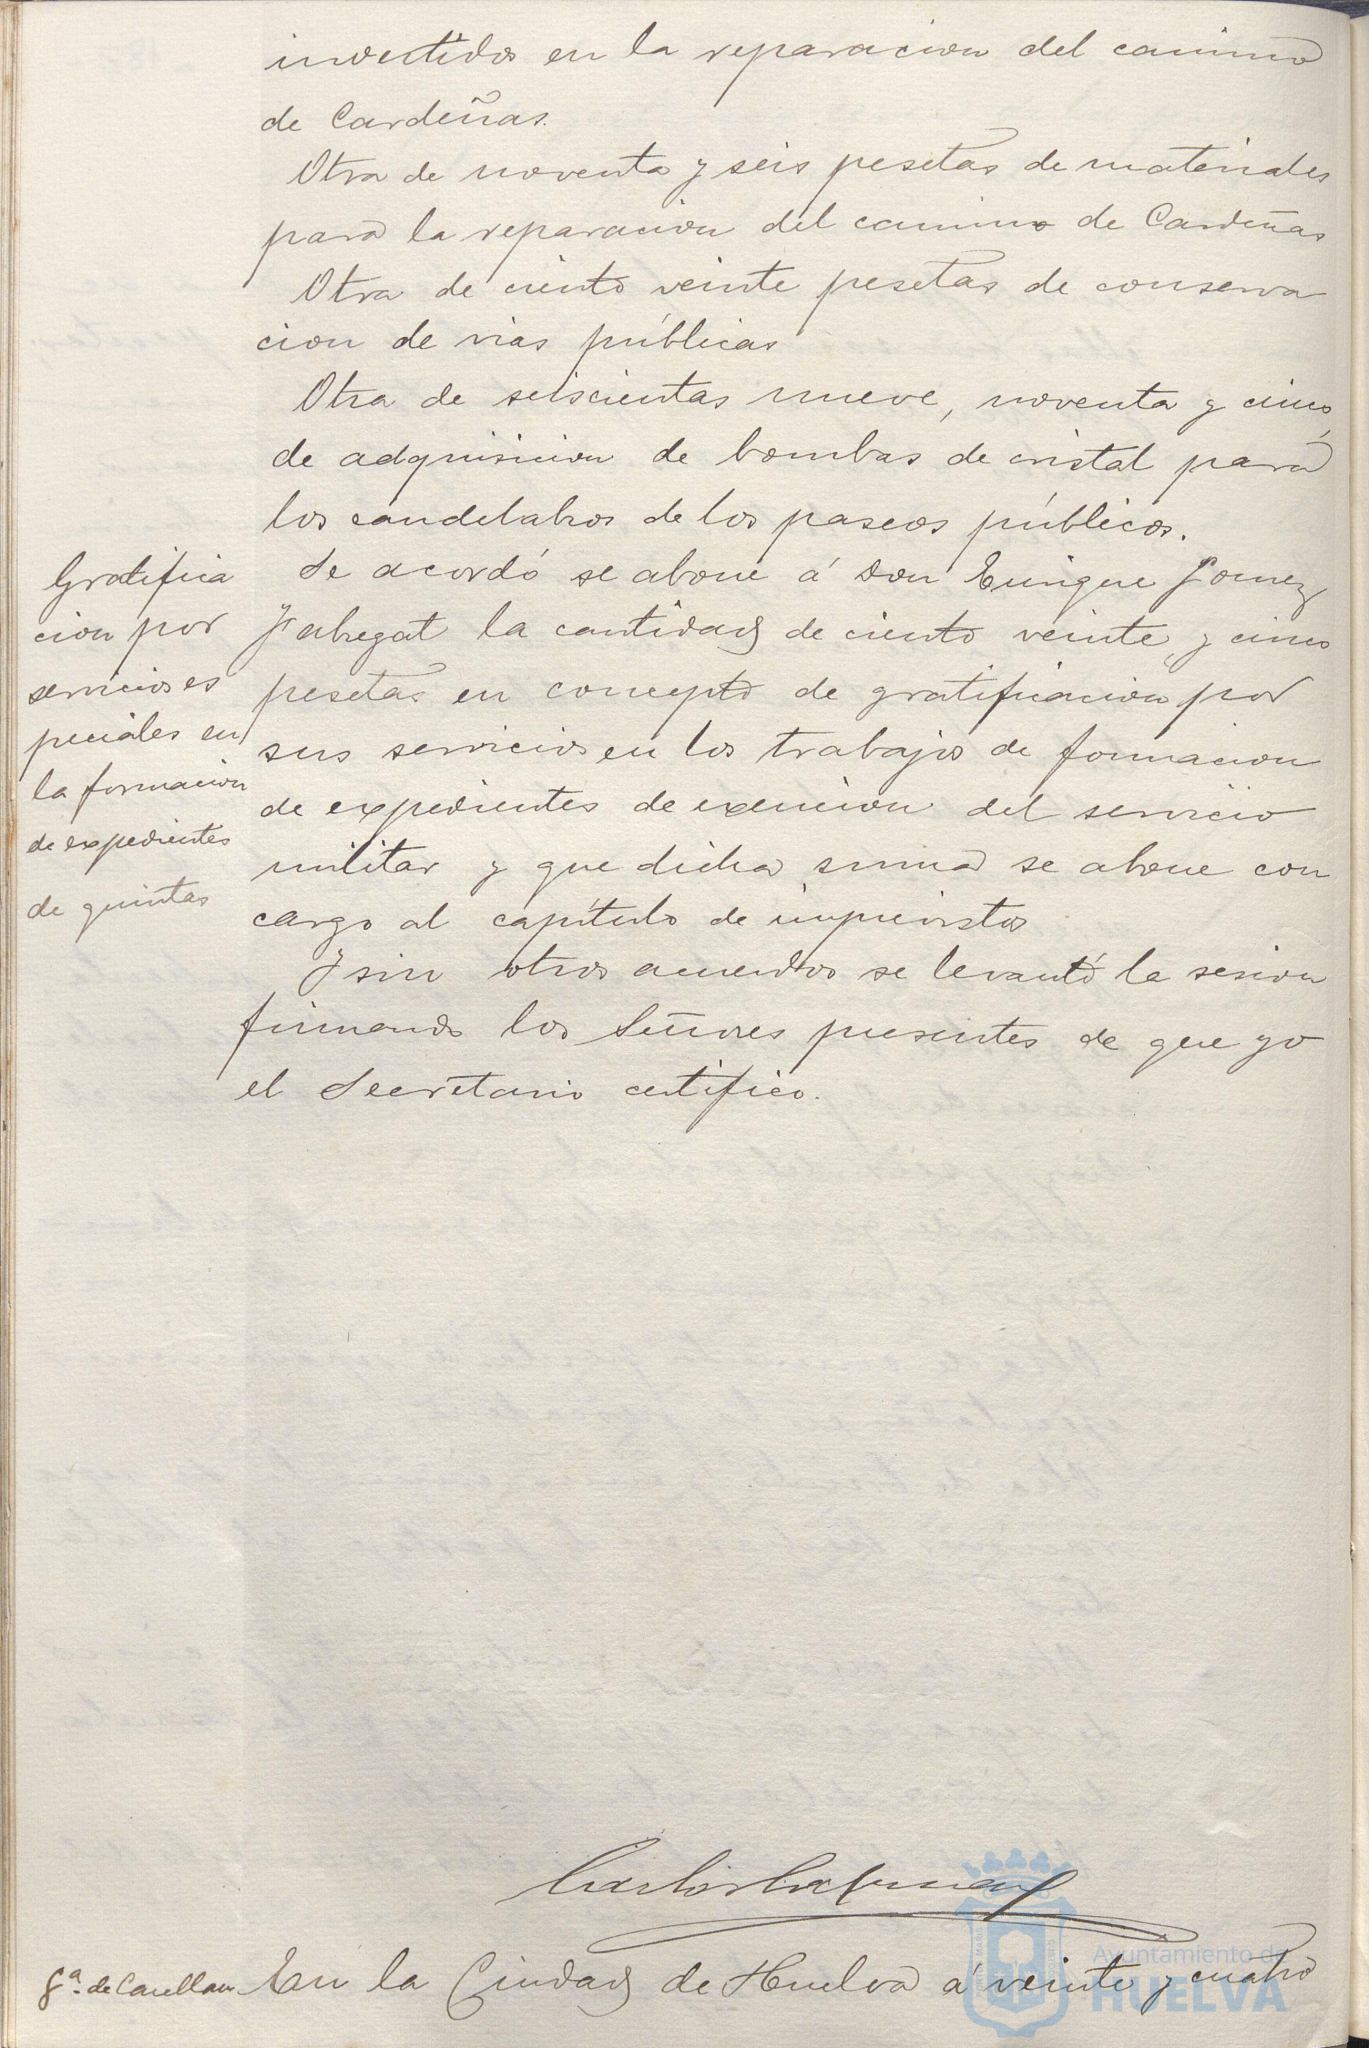 invertidos en la reparacion del camino
de Cardeñas.
Otra de noventa y seis pesetas de materiales
para la reparacion del camino de Cardeñas
Otra de ciento veinte pesetas de conserva
cion de vias públicas
Otra de seiscientas nueve, noventa y cinco,
de adquisicion de bombas de cristal para
los candelabros de los paseos públicos.
Gratifica
cion por
servicios es
peciales en
la formacion
de expedientes
de quintas
Se acordó se abone á Don Enrique Gomez
Fabregat la cantidad de ciento veinte y cinco
pesetas en concepto de gratificacion por
sus servicios en los trabajos de formacion
de expedientes de exencion del servicio
militar y que dicha suma se abone con
cargo al capítulo de imprevistos
Y sin otros acuerdos se levantó la sesion
firmando los Señores presentes de que yo
el Secretario certifico.
Gª. de Casellan
En la Ciudad de Huelva á veinte y cuatro
Ayuntamiento de
HUELVA